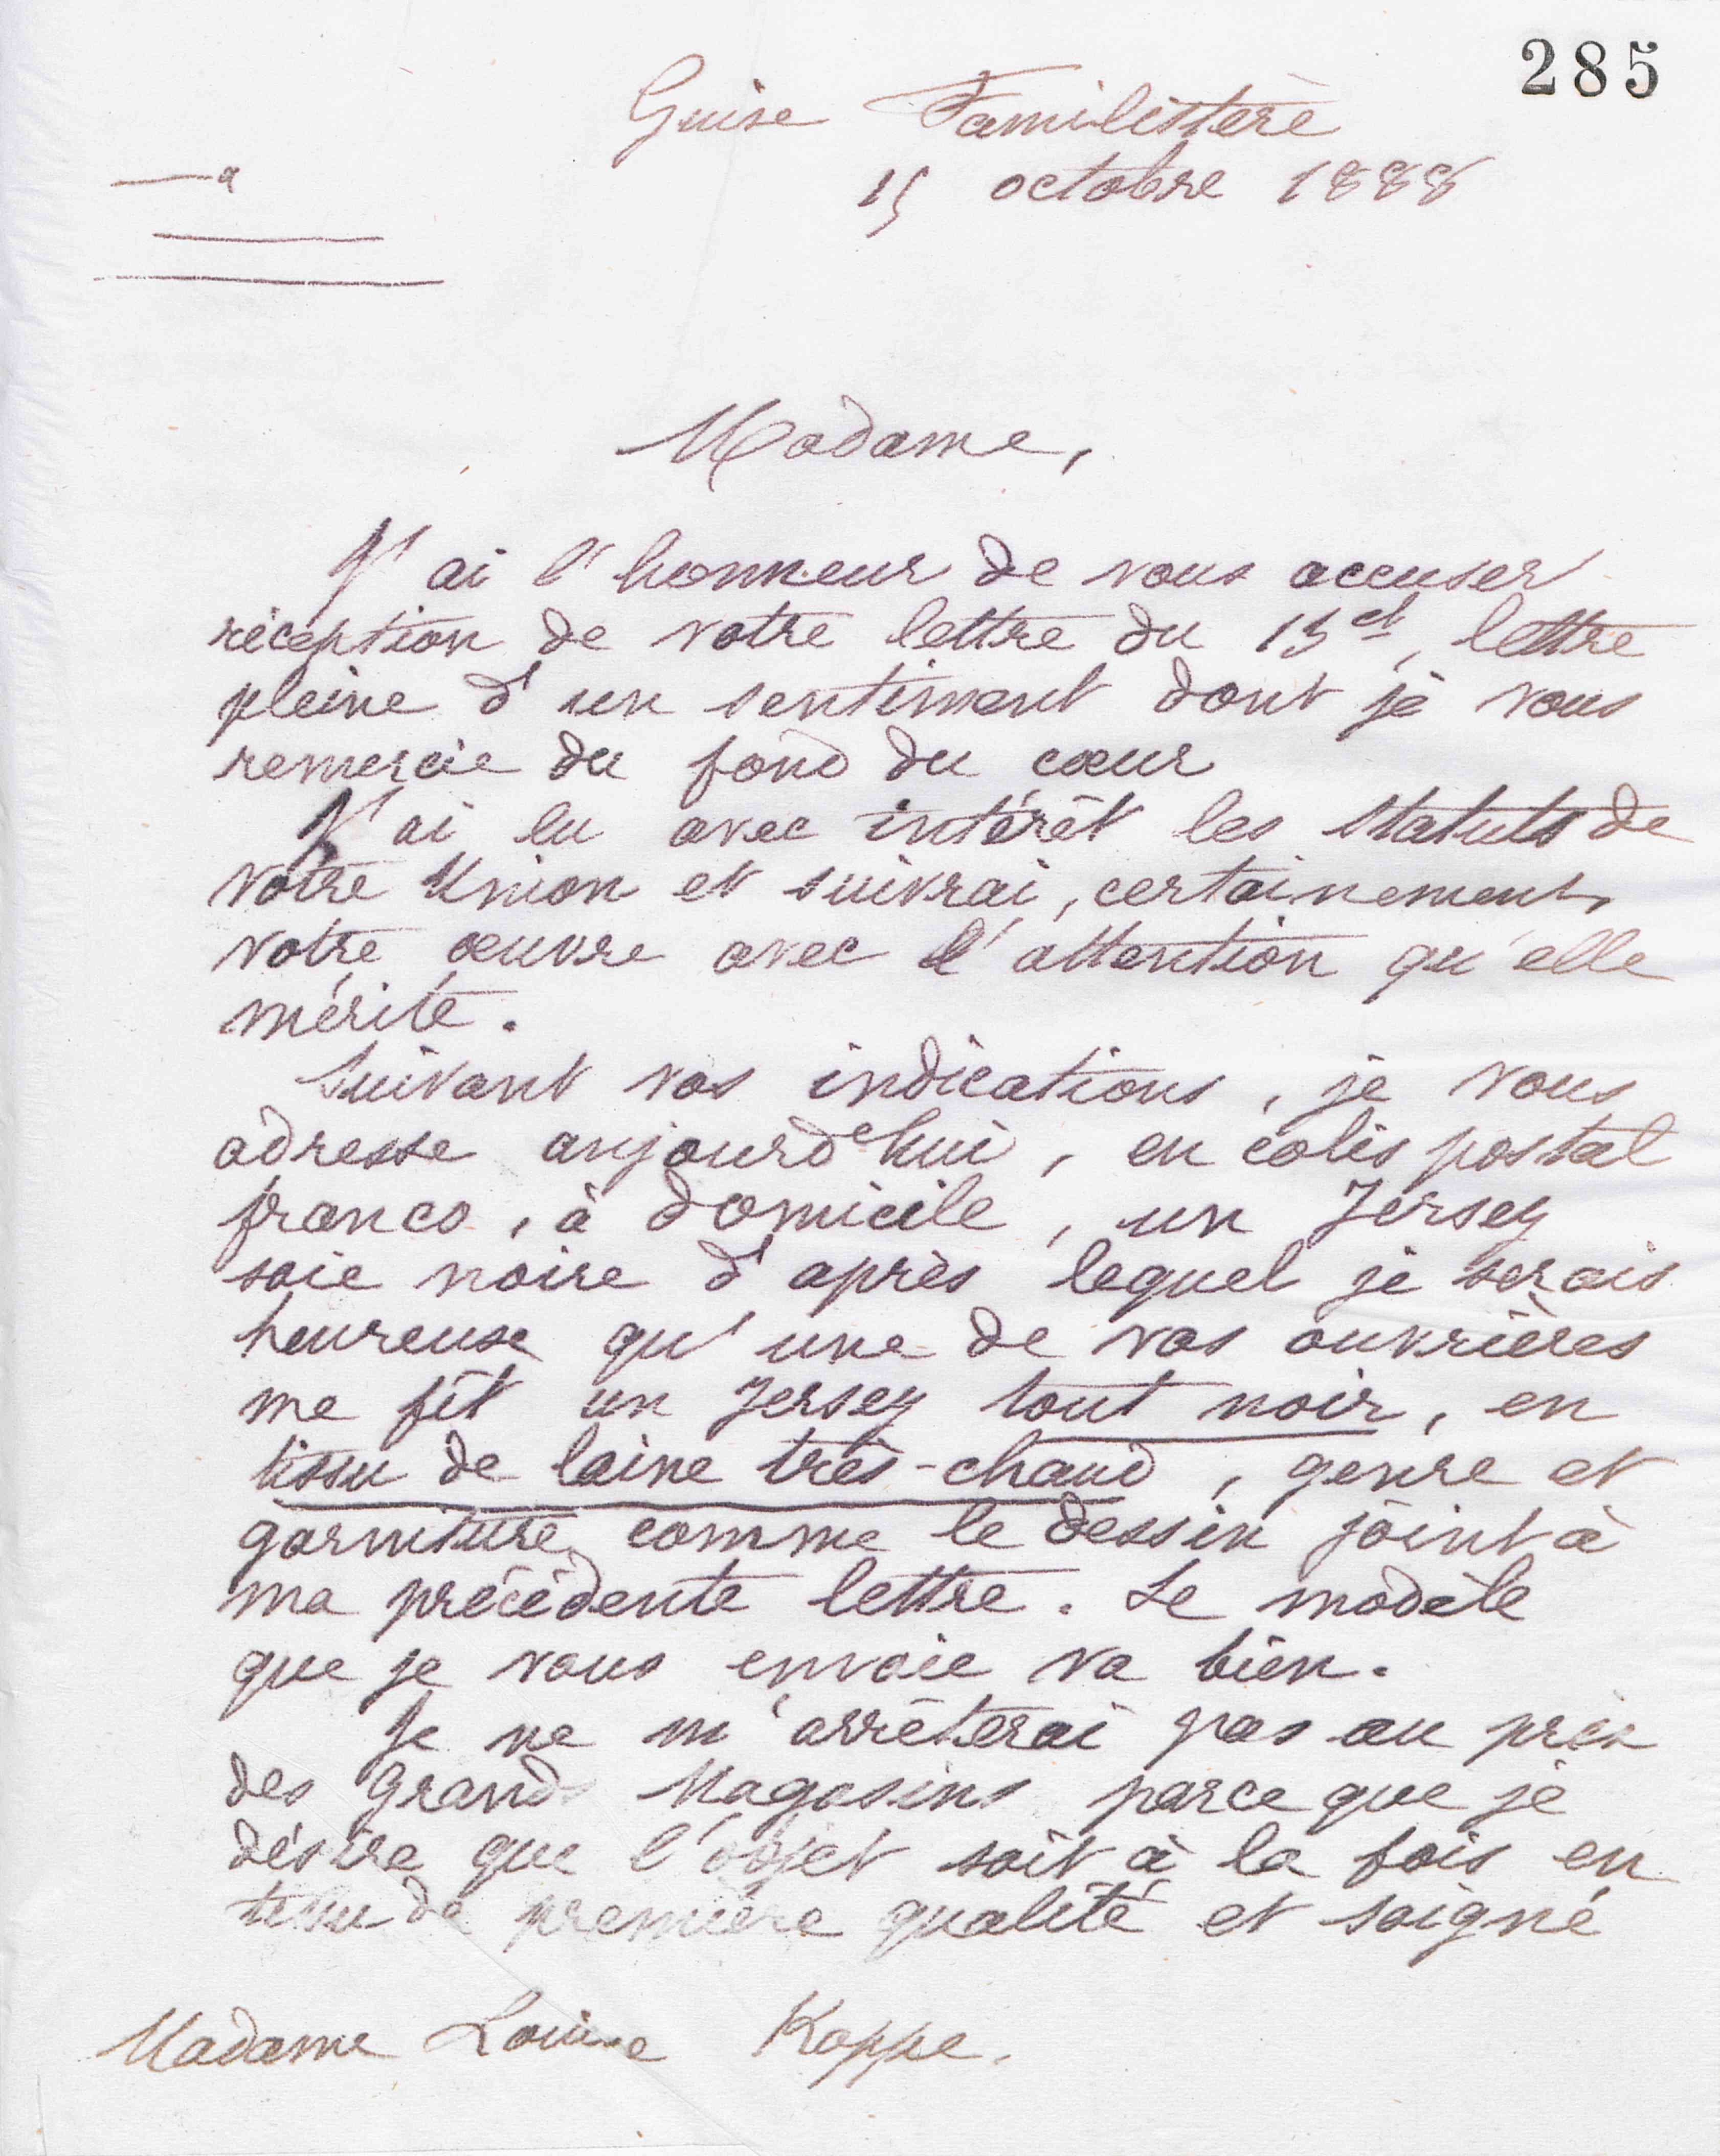 285
Guise Familistère
15 octobre 1888
Madame,
J'ai l'honneur de vous accuser
réception de votre lettre du 13 ct, lettre
pleine d'un sentiment dont je vous
remercie du fond du cœur
J'ai lu avec intérêt les Statuts de
votre Union et suivrai, certainement,
votre œuvre avec l'attention qu'elle
mérite.
Suivant vos indications, je vous
adresse aujourd'hui, en colis postal
franco, à domicile, un Jersey
soie noire d'après lequel je serais
heureuse qu'une de vos ouvrières
me fît un Jersey tout noir, en
tissu de laine très-chaud, genre et
garniture comme le dessin joint à
ma précédente lettre. Le modèle
que je vous envoie va bien.
Je ne m'arrêterai pas au prix
des Grands Magasins parce que je
désire que l'objet soit à la fois en
tissu de première qualité et soigné
Madame Louise Koppe.